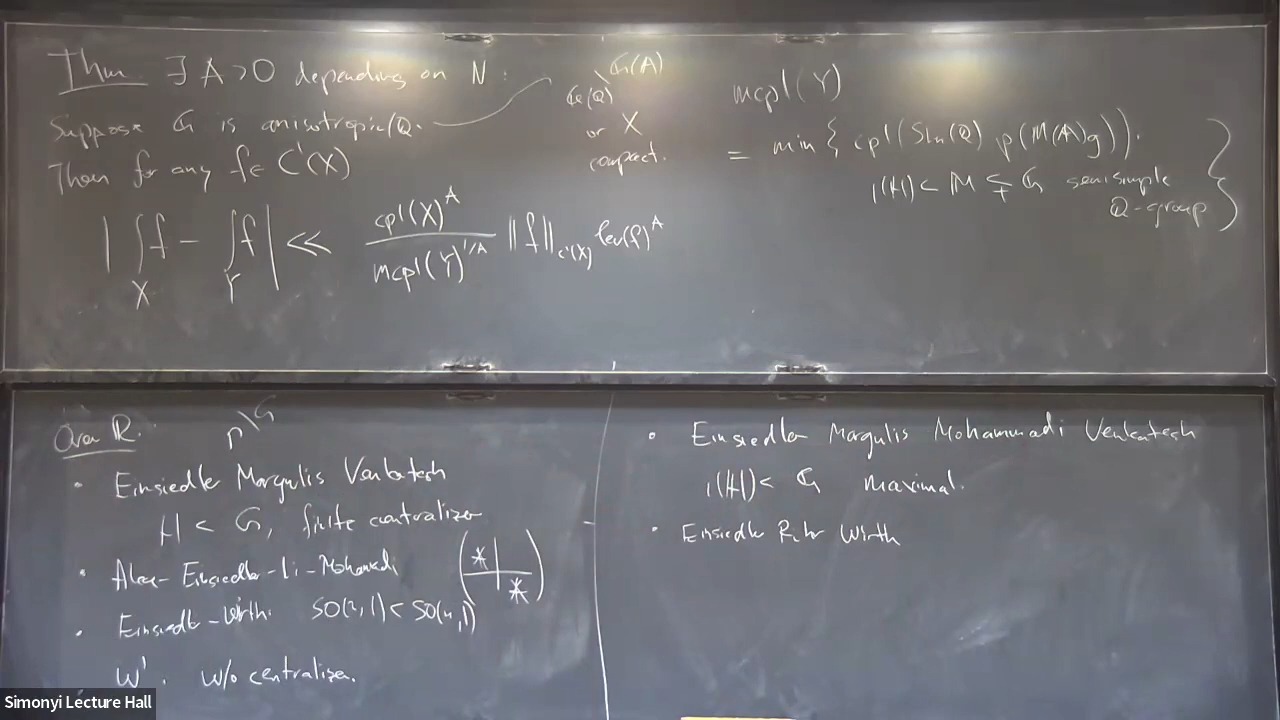 Thm ∃ A > 0 depending on N:
Suppose G is anisotropic/Q.
G(Q)\G(A)
or X
compact.
Then for any f ∈ C¹(X)
| ∫_X f − ∫_Y f | ≪ cpl(X)^A / mcpl(Y)^{1/A} ‖f‖_{C¹(X)} lev(f)^A
mcpl(Y)
= min { cpl(SLn(Q) ρ(M(A)g)):
ι(H) < M ⊊ G semisimple
Q-group }
Over R:
Γ\G
• Einsiedler Margulis Venkatesh
H < G, finite centralizer
• Aka-Einsiedler-Li-Mohammadi (* | *)
• Einsiedler-Wirth: SO(n,1) < SO(n,1)
W': w/o centralizer.
• Einsiedler Margulis Mohammadi Venkatesh
ι(H) < G maximal.
• Einsiedler Rühr Wirth
Simonyi Lecture Hall